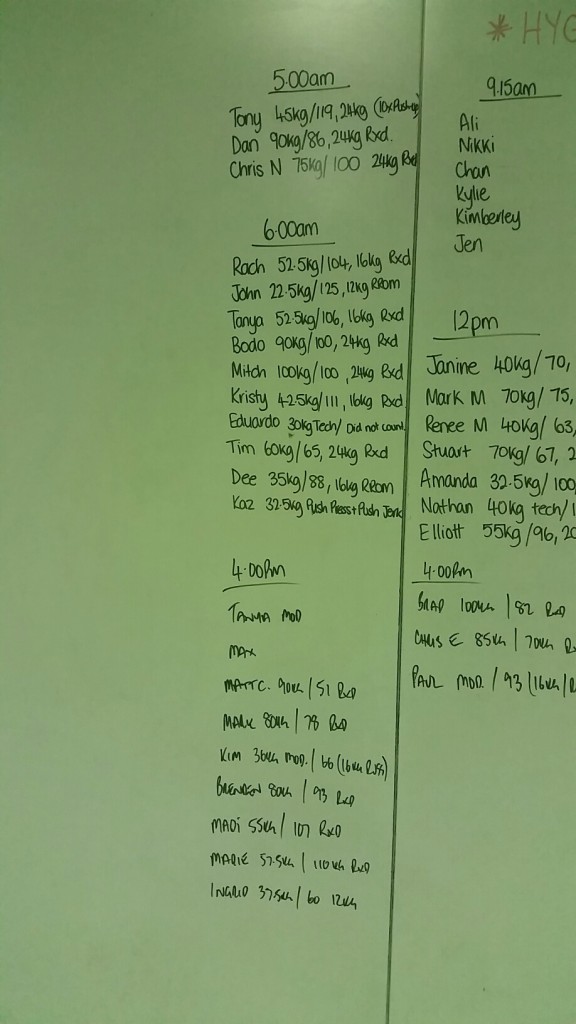 5.00am
Tony 45kg/119, 24kg (10xPush-up)
Dan 90kg/86, 24kg Rxd.
Chris N 75kg/100 24kg Rxd
6.00am
Rach 52.5kg/104, 16kg Rxd
John 22.5kg/125, 12kg RROM
Tanya 52.5kg/106, 16kg Rxd
Bodo 90kg/100, 24kg Rxd
Mitch 100kg/100, 24kg Rxd
Kristy 42.5kg/111, 16kg Rxd
Eduardo 30kg Tech/ Did not count
Tim 60kg/65, 24kg Rxd
Dee 35kg/88, 16kg RROM
Kaz 32.5kg Push Press + Push Jerk
4.00Pm
TANYA MOD
MAX
MATT C. 90kg/51 RxD
MARK 80kg/78 RxD
KIM 36kg MOD./66 (16kg
BRENDEN 80kg/93 RxD
MADI 55kg/107 RxD
MARIE 57.5kg/110kg RxD
INGRID 37.5kg/60 12kg
* HYG
9.15am
Ali
Nikki
Chan
Kylie
Kimberley
Jen
12pm
Janine 40kg/70,
Mark M 70kg/75,
Renee M 40kg/63,
Stuart 70kg/67, 2
Amanda 32.5kg/100
Nathan 40kg tech/1
Elliott 55kg/96, 20
4.00Pm
BRAD 100kg/82 RxD
CHRIS E 85kg/70kg R
PAUL MOD./93 (16kg/R